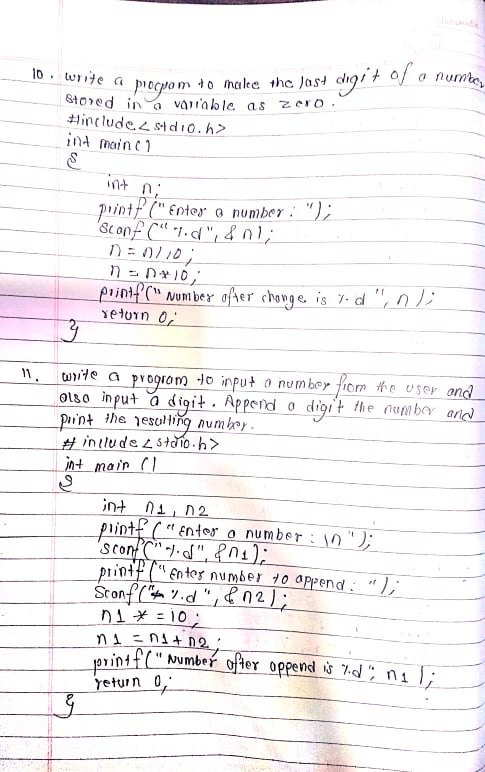 10. write a program to make the last digit of a number
stored in a variable as zero.
#include<stdio.h>
int main()
{
int n;
printf("Enter a number: ");
scanf("%d", &n);
n = n/10;
n = n*10;
printf("Number after change is %d", n);
return 0;
}
11. write a program to input a number from the user and
also input a digit. Append a digit the number and
print the resulting number.
# include<stdio.h>
int main ()
{
int n1, n2
printf("Enter a number: \n");
scanf("%d", &n1);
printf("Enter number to append: ");
Scanf("%d", &n2);
n1 *=10;
n1 = n1+n2;
printf("Number after append is %d", n1);
return 0;
}